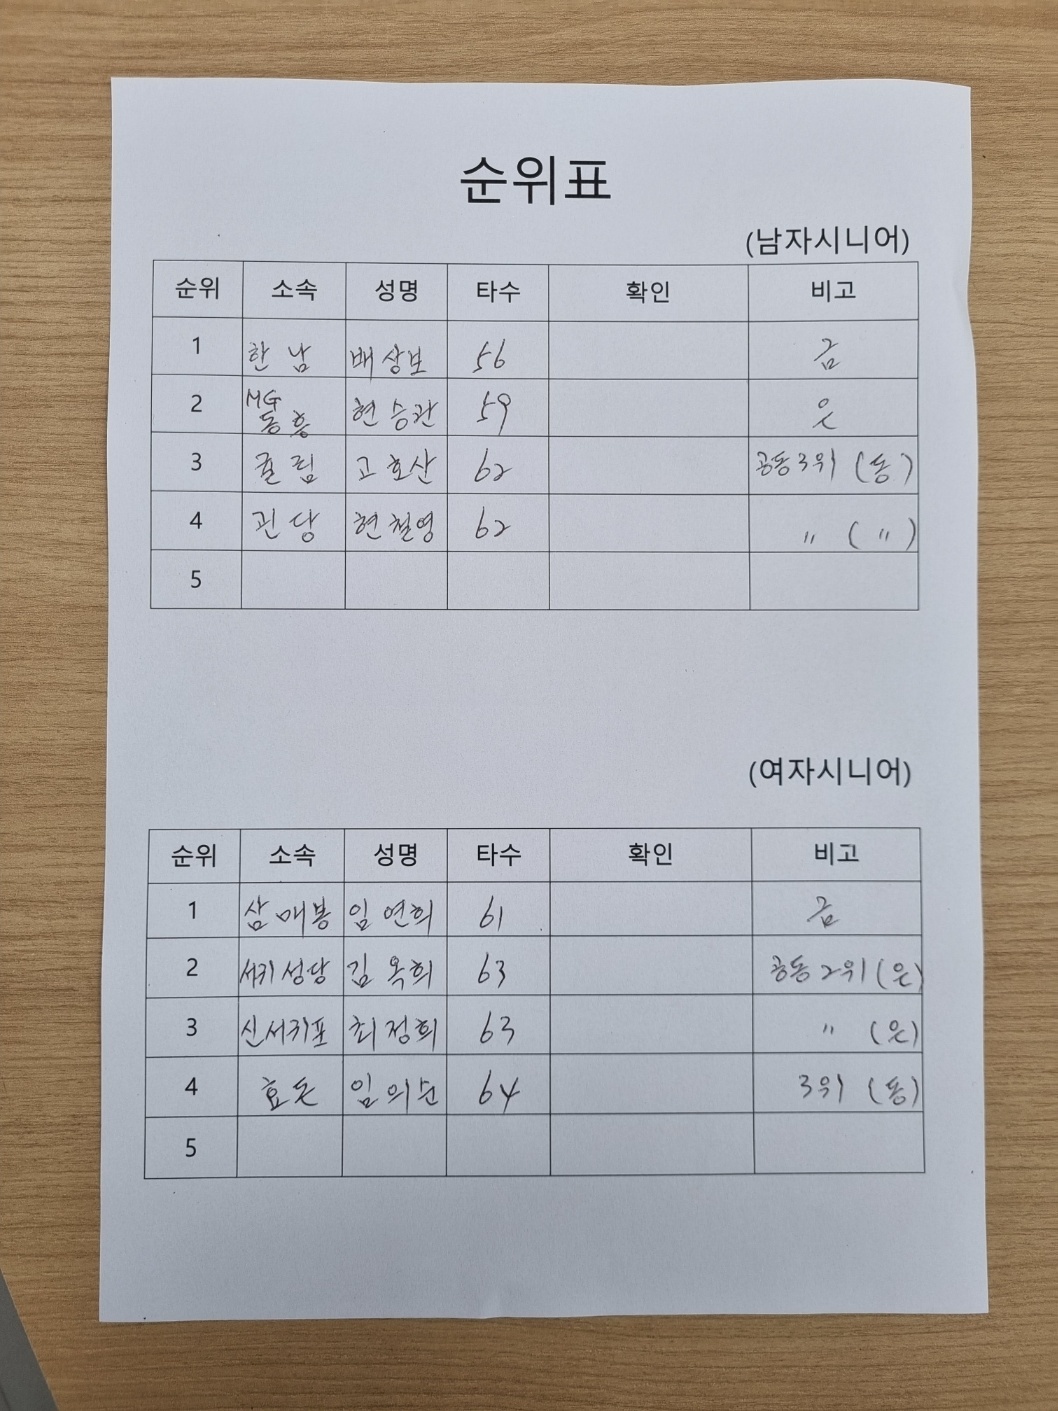 순위표
(남자시니어)
순위 소속 성명 타수 확인 비고
1 한남 배상보 56 금
2 MG동흥 현승관 59 은
3 귤림 고호산 62 공동3위 (동)
4 괸당 현철영 62 〃 (〃)
5
(여자시니어)
순위 소속 성명 타수 확인 비고
1 삼매봉 임연희 61 금
2 서귀성당 김옥희 63 공동2위 (은)
3 신서귀포 최정희 63 〃 (은)
4 효돈 임의순 64 3위 (동)
5